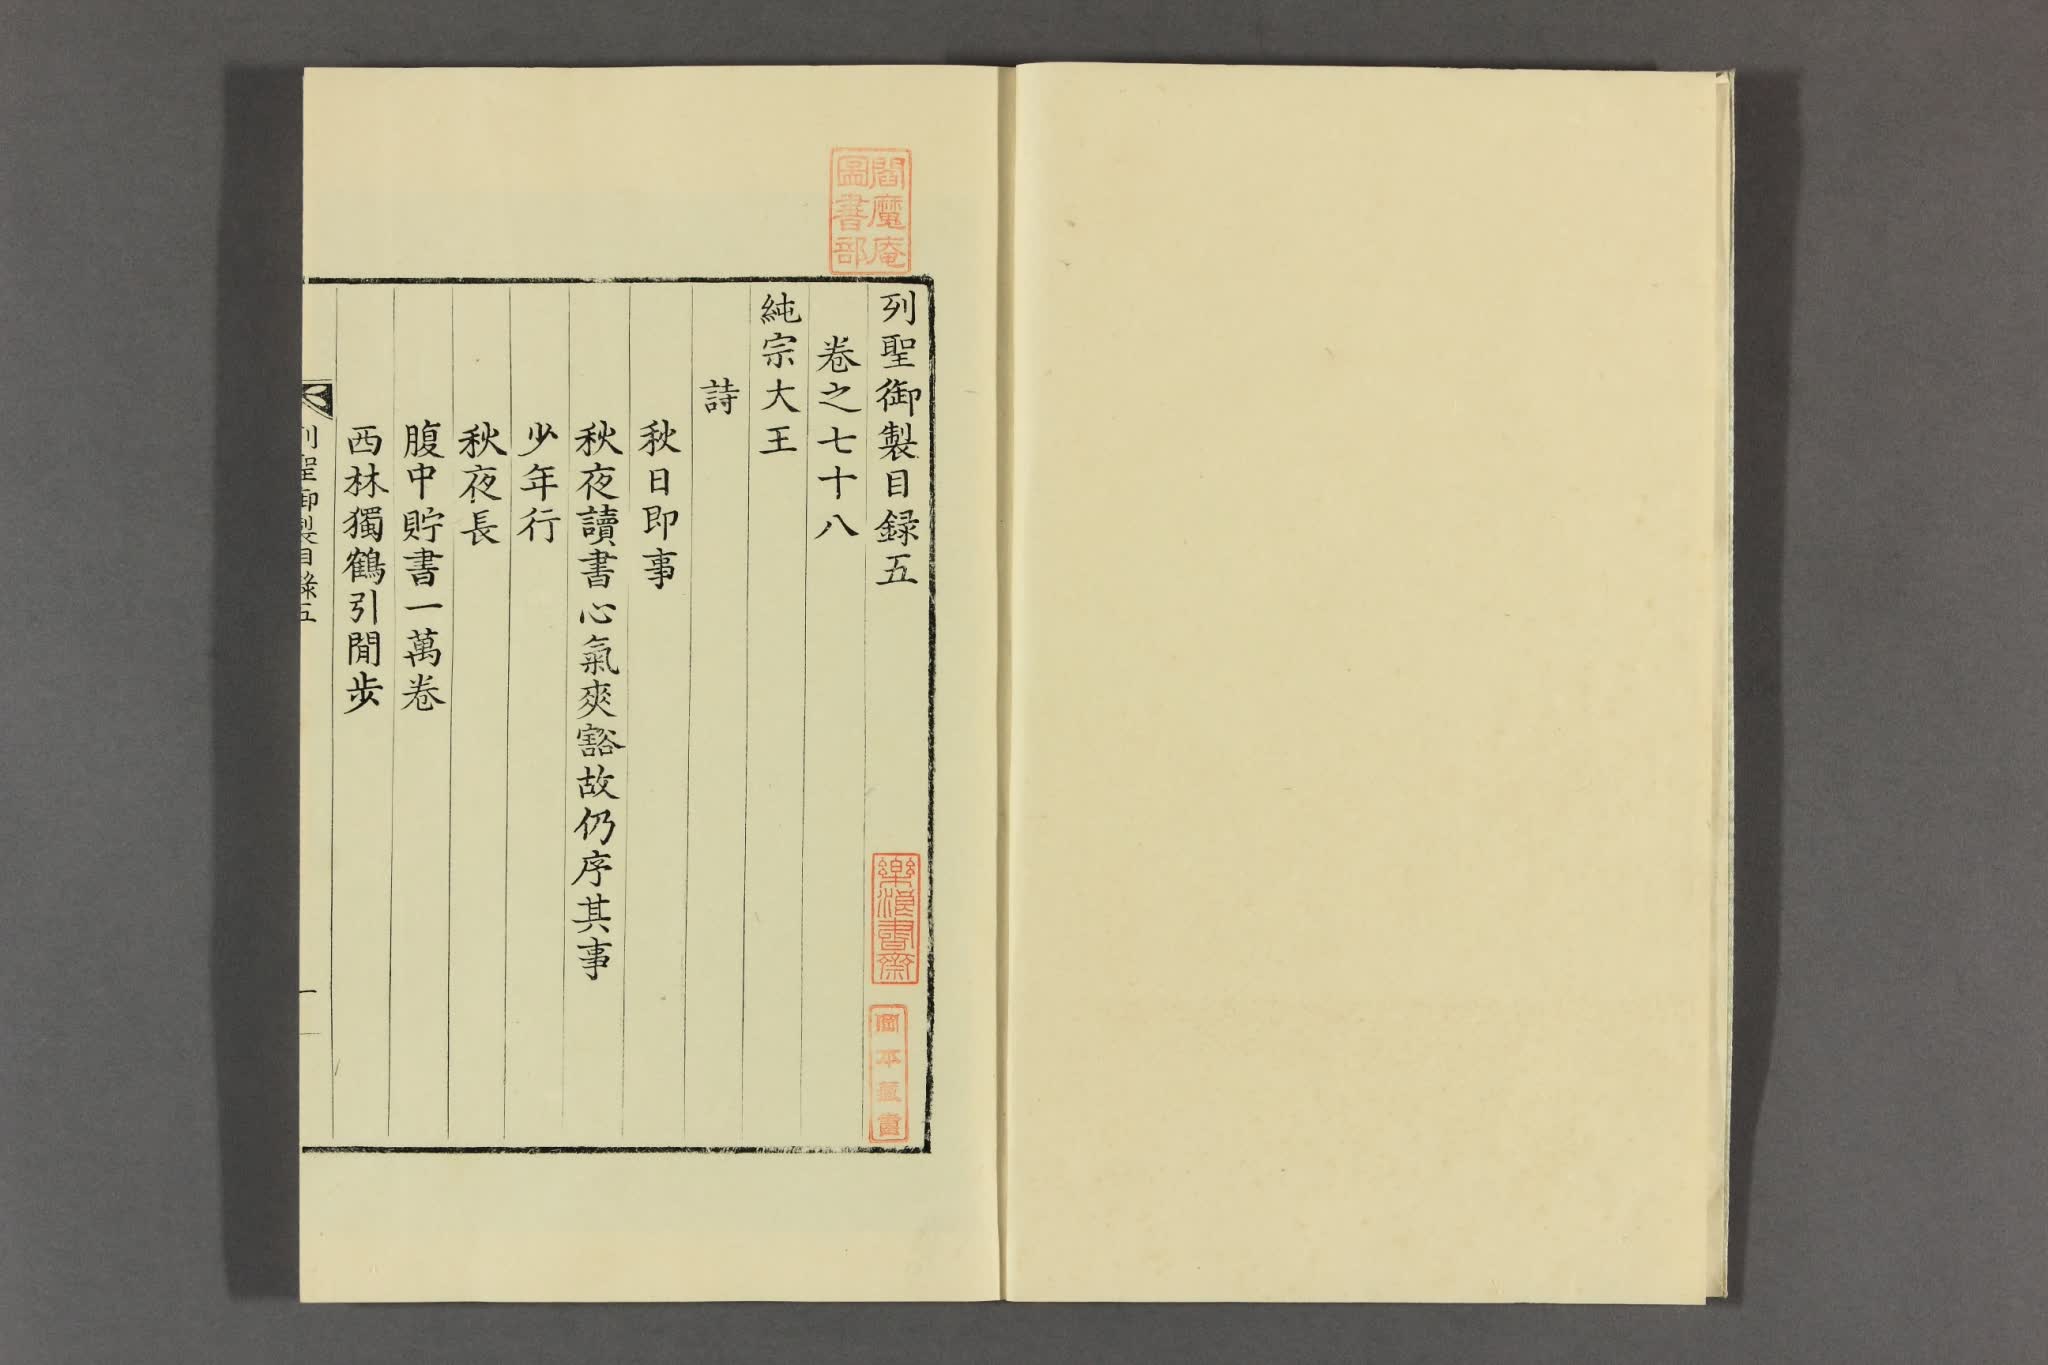 列聖御製目録五
卷之七十八
純宗大王
詩
秋日即事
秋夜讀書心氣爽豁故仍序其事
少年行
秋夜長
腹中貯書一萬卷
西林獨鶴引閒步
列聖御製目錄五
一
閻魔庵
圖書部
樂浪書齋